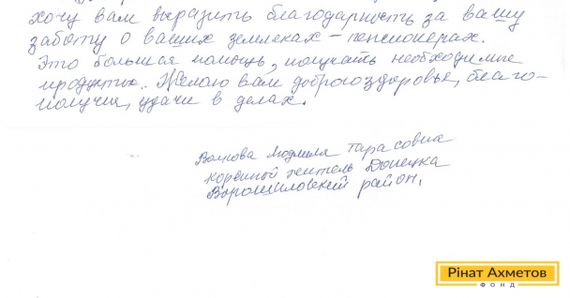 хочу вам выразить благодарность за вашу
заботу о ваших земляках - пенсионерах.
Это большая помощь, получать необходимые
продукты. Желаю вам доброго здоровье, благо-
получия, удачи в делах.
Волкова Людмила Тарасовна
коренной житель Донецка
Ворошиловский район,
Рінат Ахметов
ФОНД